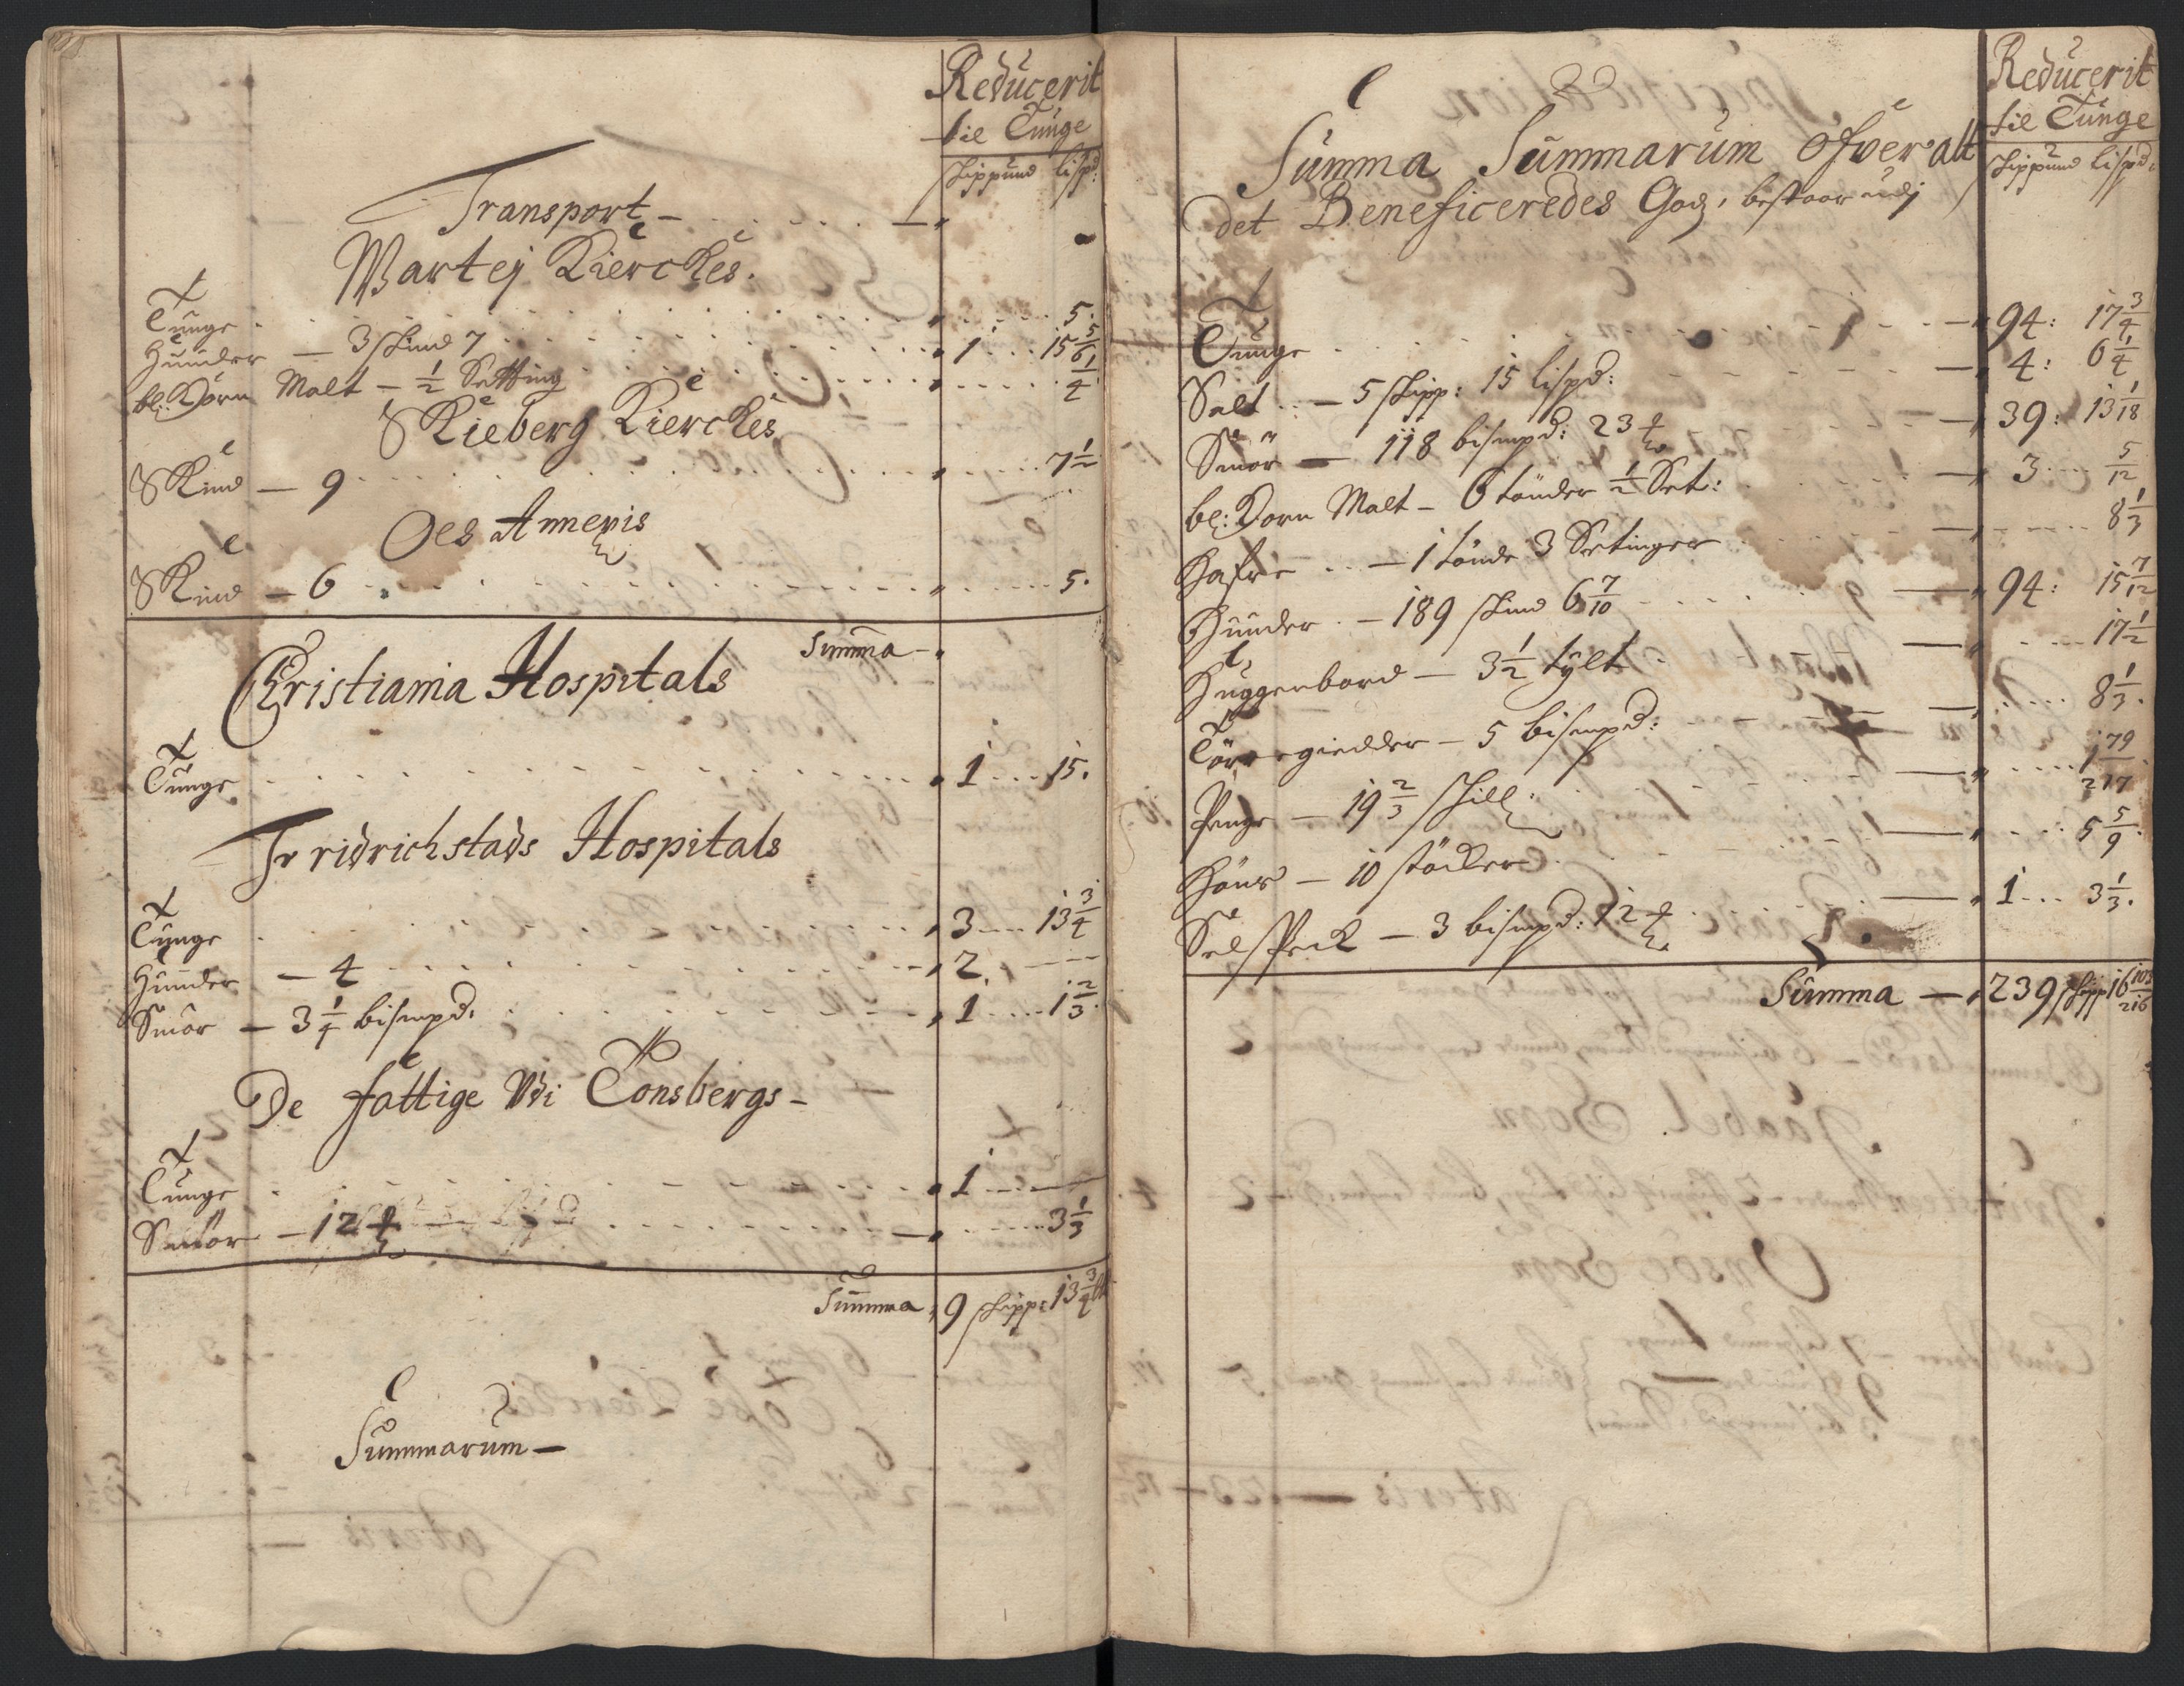 Reducerit
til Tunge
Skippund lispd:
Transport —
Wartej Kierckes.
Tunge 5.
Hunder — 3 skind 7 1 15 5/6
bl: Korn Malt — 1/2 Setting 1/4
Skieberg Kierckes
Skind — 9 7 1/2
Oes Annexis
Skind — 6 5.
Summa —
Christiania Hospitals
Tunge 1 15.
Fridrichstads Hospitals
Tunge 3 13 3/4
Hunder — 4 2.
Smör — 3 1/4 bismpd: 1 1 2/3
De fattige Udi Tonsbergs —
Tunge 1
Smör — 12 3 1/3
Summa 9 skipp: 13 3/4
Summarum —
Reducerit
til Tunge
Skippund lispd:
Summa Summarum Ofver alt
det Beneficeredes Godz, bestaar udj
Tunge 94: 17 3/4
Salt — 5 skipp: 15 lispd: 4: 6 1/4
Smör — 118 bismpd: 23 39: 13 1/18
bl: Korn Malt — 6 tönder 1/2 Set: 3 5/12
Hafre — 1 tönde 3 Setinger 8 1/3
Hunder — 189 skind 6 7/10 94: 15 7/12
Huggenbord — 3 1/2 tylt 17 1/2
Törre giedder — 5 bismpd: 8 1/3.
Penge — 19 2/3 skill: 1 79/217
Höns — 10 stöcker 5 5/9.
Selspeck — 3 bismpd: 12 1 3 1/3.
Summa — 239 skipp 16 103/216